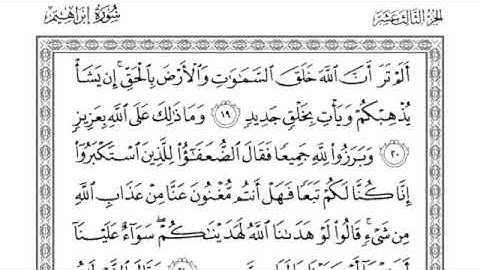 الجزء الثالث عشر
سورة إبراهيم
ألم تر أن الله خلق السموت والأرض بالحق إن يشأ
يذهبكم ويأت بخلق جديد ١٩ وما ذلك على الله بعزيز
٢٠ وبرزوا لله جميعا فقال الضعفؤا للذين استكبروا
إنا كنا لكم تبعا فهل أنتم مغنون عنا من عذاب الله
من شيء قالوا لو هدىنا الله لهدينكم سواء علينا